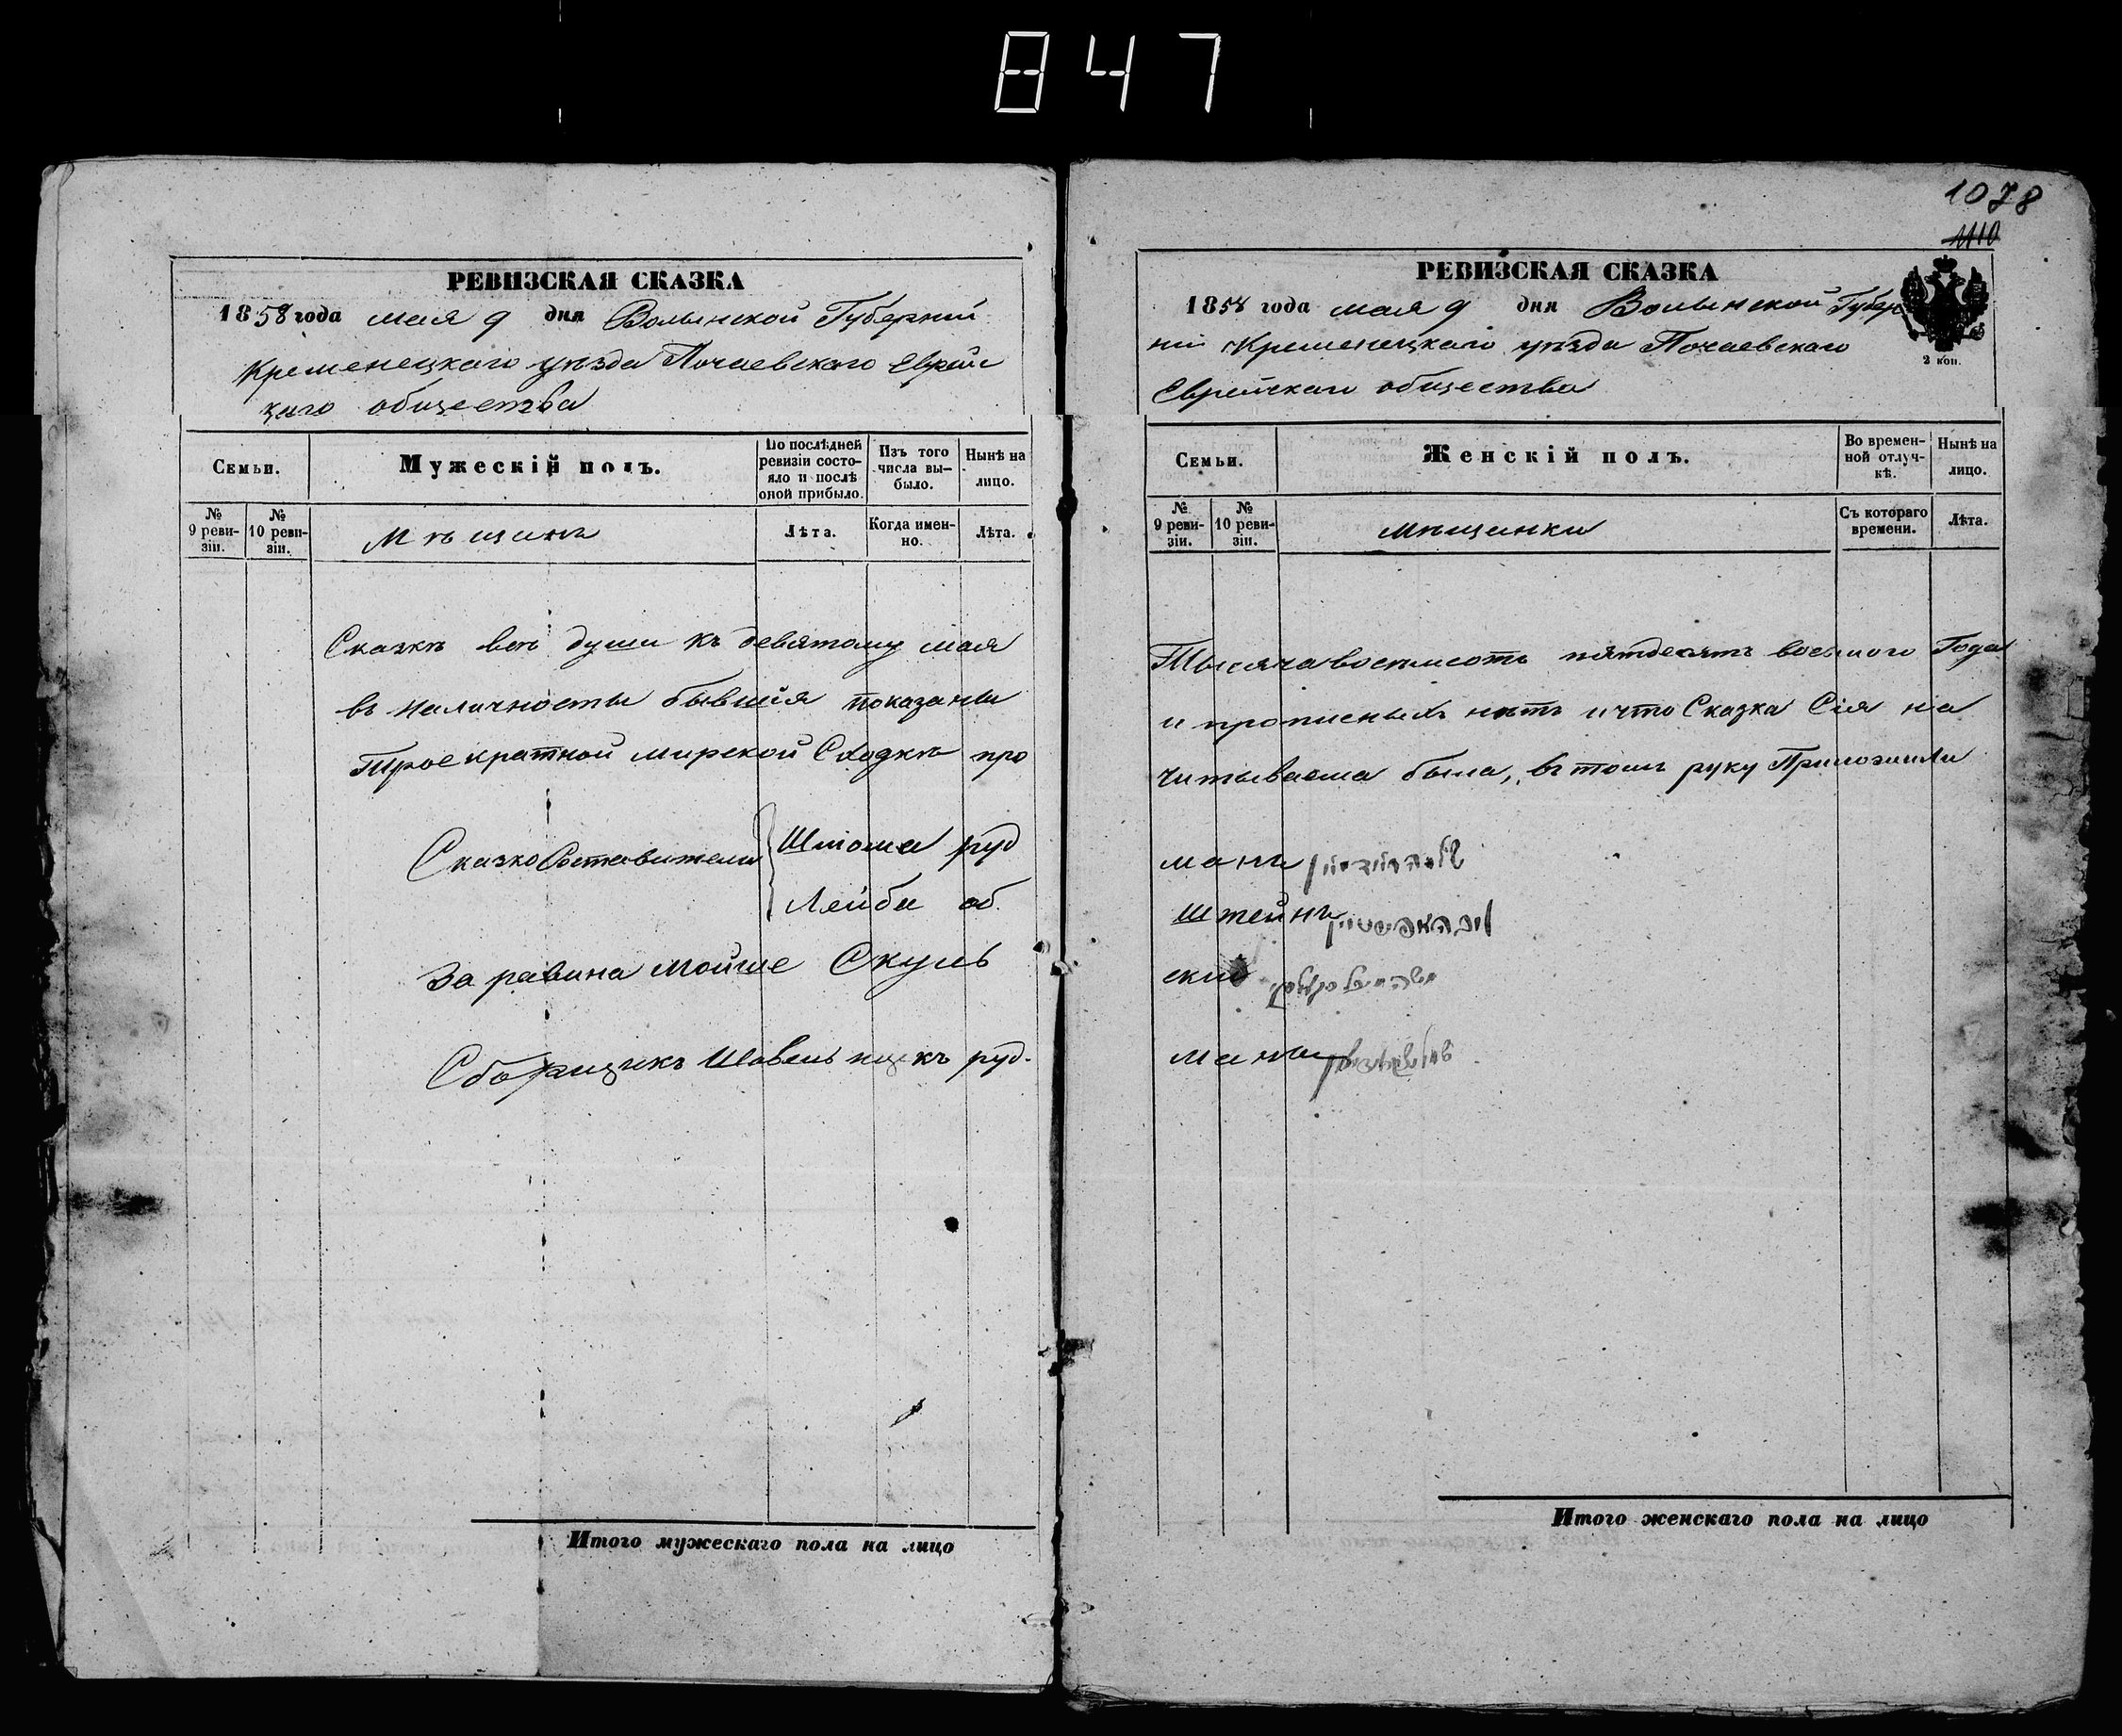 847
РЕВИЗСКАЯ СКАЗКА
1858 года мая 9 дня Волынской Губерніи
Кременецкаго уѣзда Почаевскаго Еврейс
каго общества
Семьи.
Мужескій полъ.
По послѣдней ревизіи состояло и послѣ оной прибыло.
Изъ того числа выбыло.
Нынѣ на лицо.
№ 9 ревизіи.
№ 10 ревизіи.
Мѣщинъ
Лѣта.
Когда именно.
Лѣта.
Сказкѣ всѣ души къ девятому мая
въ наличности бывшія показаны
Троекратной мирской Сходкѣ про
Сказко Составители
Шлома руд
Лейба об
За равина Мойше Скуль
Сборщикъ руд.
Итого мужескаго пола на лицо
1078
1110
РЕВИЗСКАЯ СКАЗКА
1858 года мая 9 дня Волынской Губер
ніи Кременецкаго уѣзда Почаевскаго
Еврейскаго общества
2 коп.
Семьи.
Женскій полъ.
Во временной отлучкѣ.
Нынѣ на лицо.
№ 9 ревизіи.
№ 10 ревизіи.
мѣщанки
Съ котораго времени.
Лѣта.
Тысяча восемсотъ пятдесятъ восмого Года
и прописныхъ нѣтъ и что Сказка Сія на
читываема была, въ томъ руку Приложили
манъ
штейнъ
скій
манъ
Итого женскаго пола на лицо